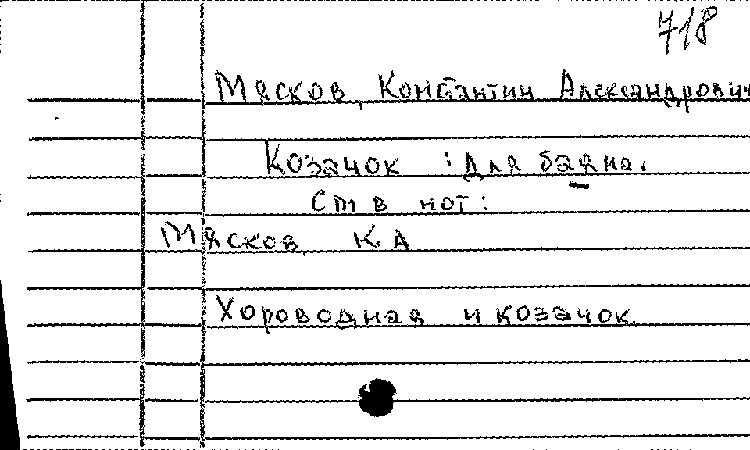 718
Мясков, Константин Александрович
Козачок : Для баяна.
Ст в нот:
Мясков К А
Хороводная и козачок